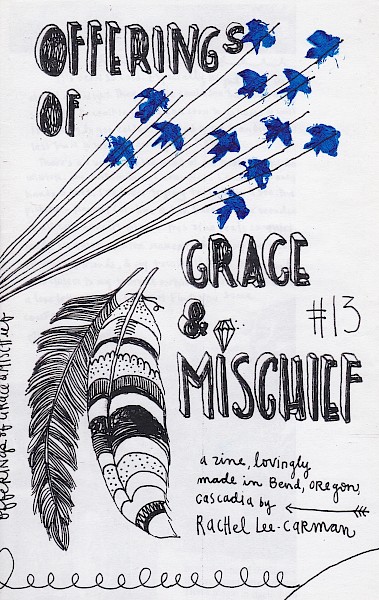 OFFERINGS
OF
GRACE
&
MISCHIEF
#13
a zine, lovingly
made in Bend, Oregon,
Cascadia by
Rachel Lee-Carman
offerings of Grace & Mischief